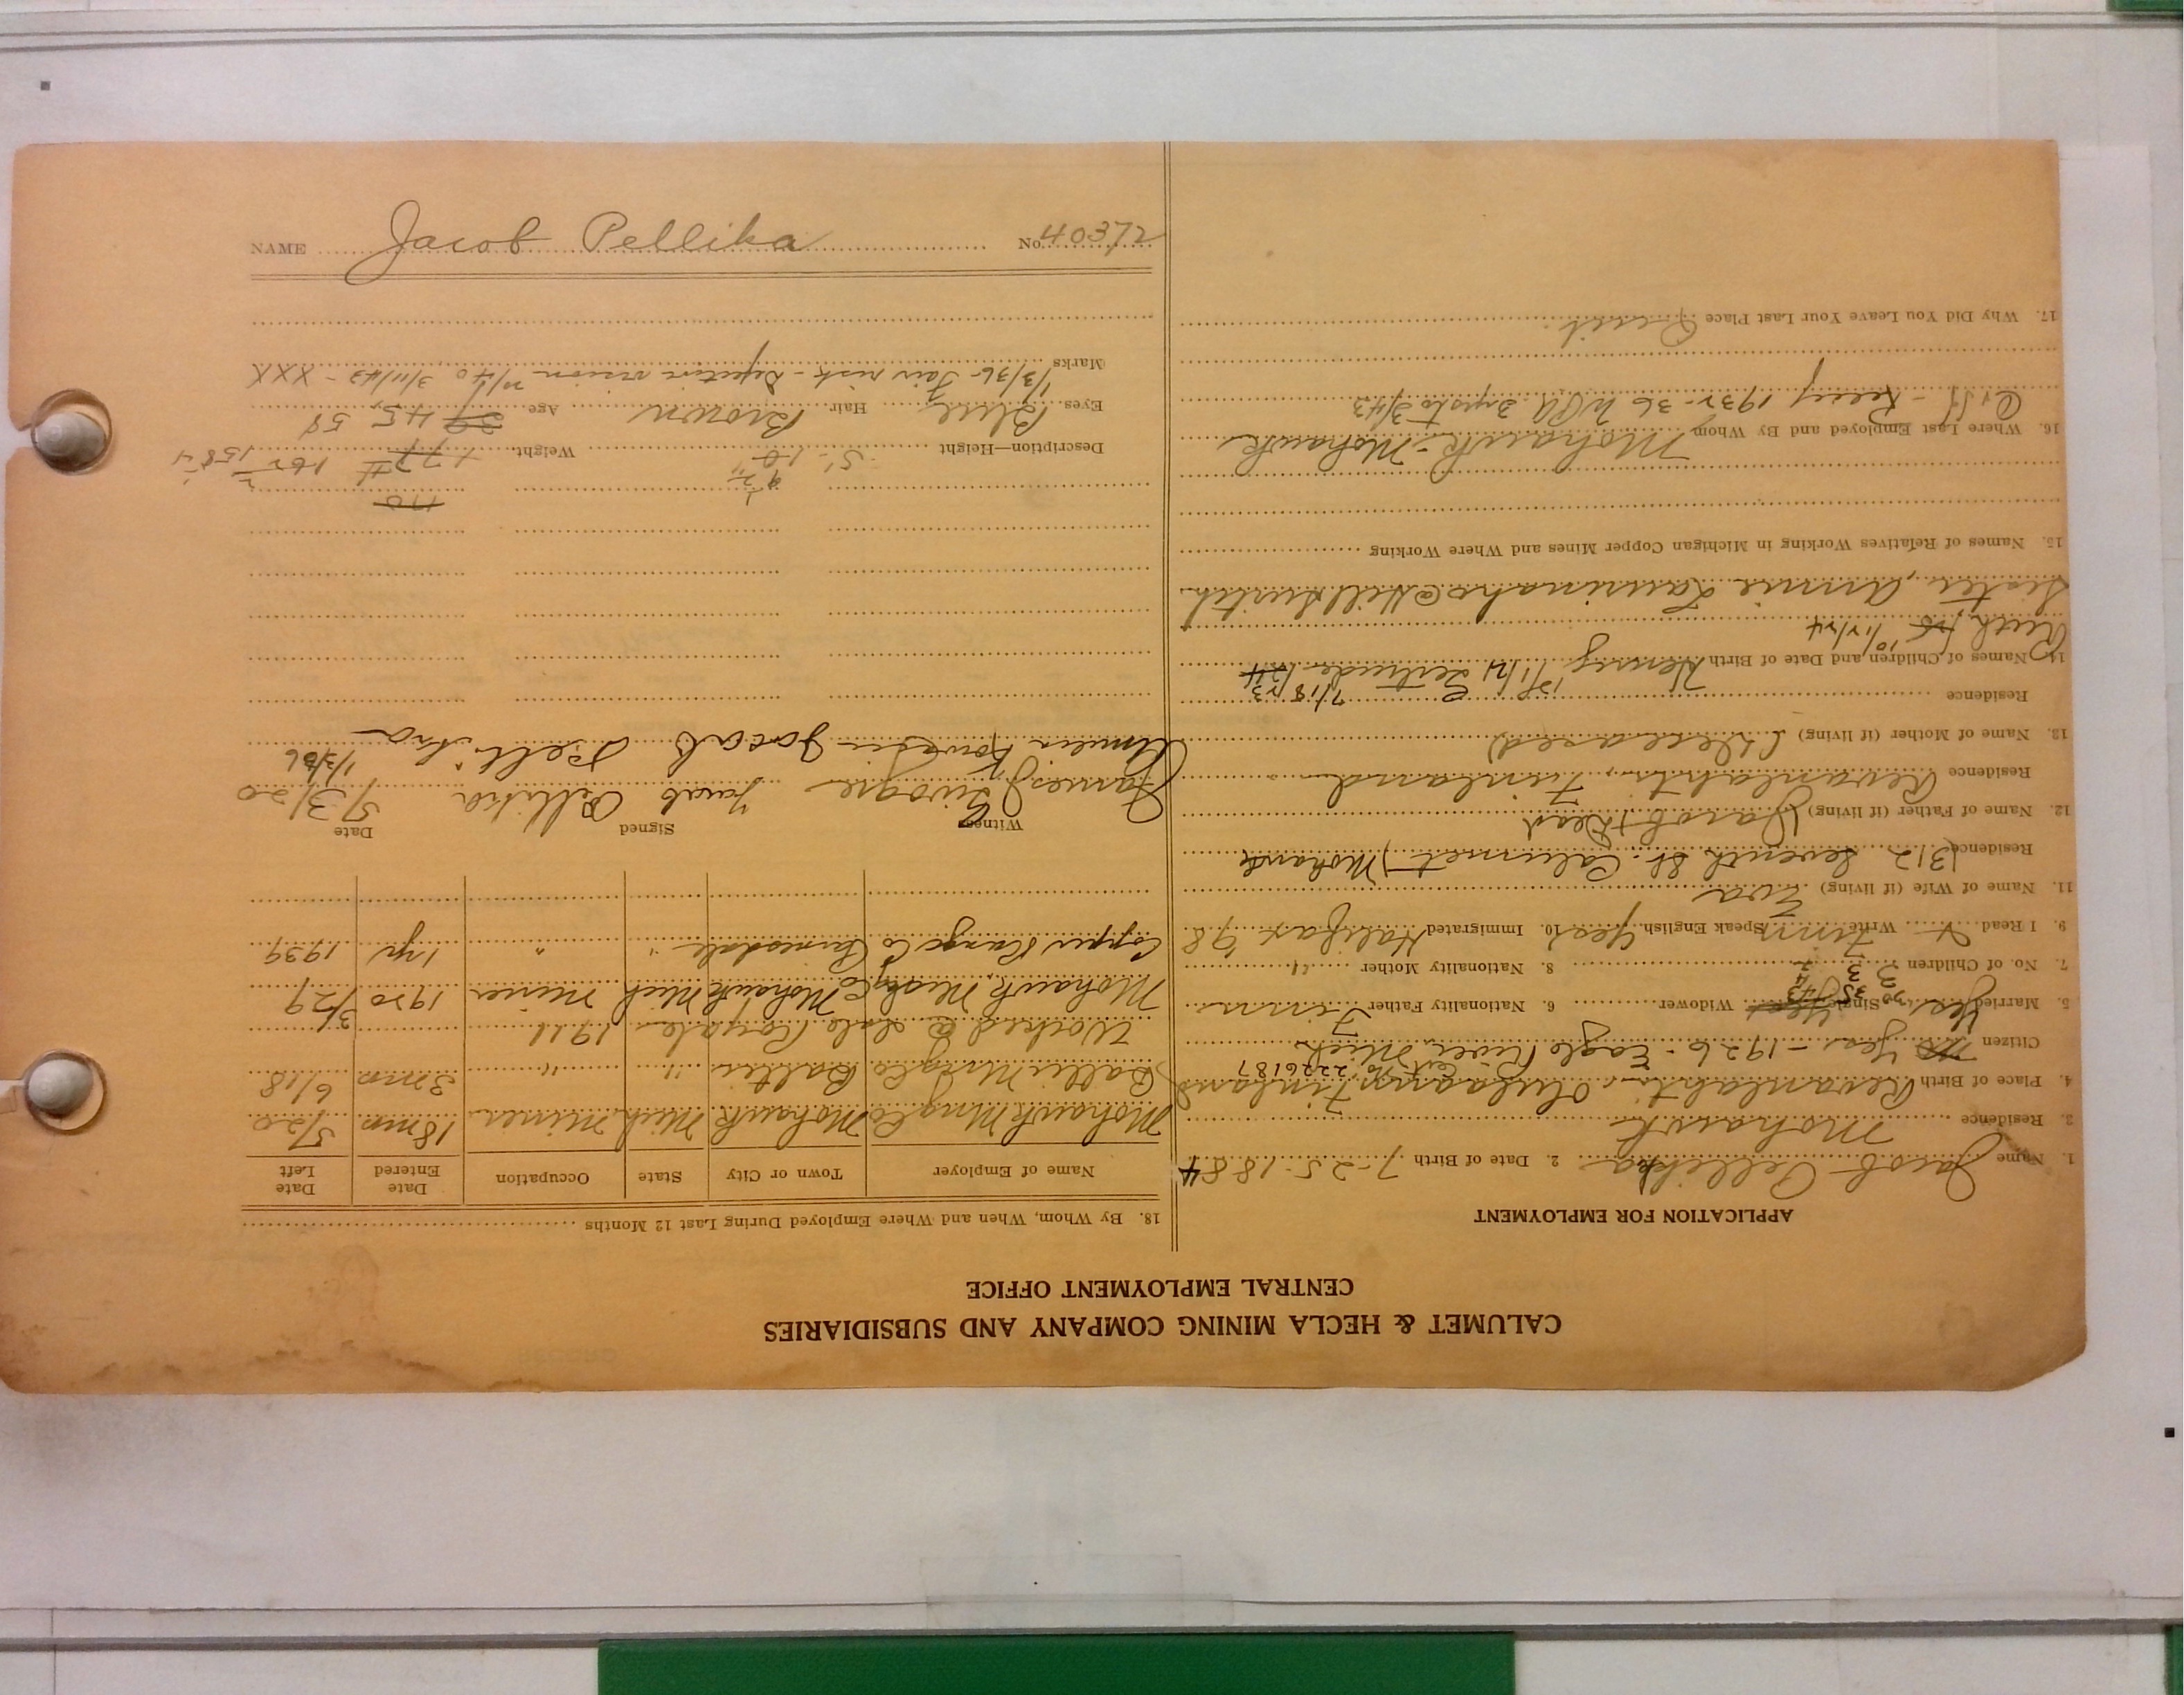 CALUMET & HECLA MINING COMPANY AND SUBSIDIARIES
CENTRAL EMPLOYMENT OFFICE
APPLICATION FOR EMPLOYMENT
1. Name Jacob Pellika 2. Date of Birth 7-25-1884
3. Residence Mohawk
4. Place of Birth Finland
Cert No 2226187
Citizen Yes - 1926 - Eagle River, Mich
5. Married Yes Single Yes Widower 6. Nationality Father Finn
7. No. of Children 3 8. Nationality Mother "
9. I Read Write Finn Speak English Yes 10. Immigrated Halifax 98
11. Name of Wife (if living) Eva
Residence (312 Seventh St. Calumet) Mohawk
12. Name of Father (if living) Jacob Dead
Residence Finland
13. Name of Mother (if living) (Deceased)
Residence
14. Names of Children and Date of Birth Henry Gertrude 7/18/23
Ruth 10/12/24
Sister, Annie
15. Names of Relatives Working in Michigan Copper Mines and Where Working
16. Where Last Employed and By Whom Mohawk - Mohawk
1932-36 WPA 3 yrs to 3/43
17. Why Did You Leave Your Last Place Quit
18. By Whom, When and Where Employed During Last 12 Months
Name of Employer Town or City State Occupation Date Entered Date Left
Mohawk Mng Co Mohawk Mich Miner 18 mo 5/20
Mng Co Baltic " " 3 mo 6/18
Worked @ Isle Royale 1911
Mohawk Mng Co Mohawk Mich Miner 1920 3/29
Copper Range Co Painesdale " " 1 yr 1939
Witness Signed Date
James Jacob Pellika 5/3/20
Jacob Pellika 1/3/36
170
Description—Height 5'-10" 9½ Weight 177 # 162½ 158½
Eyes Blue Hair Brown Age 39 45 58
Marks 1/3/36 Fair risk - Defective vision 3/11/43 - XXX
NAME Jacob Pellika No. 40372